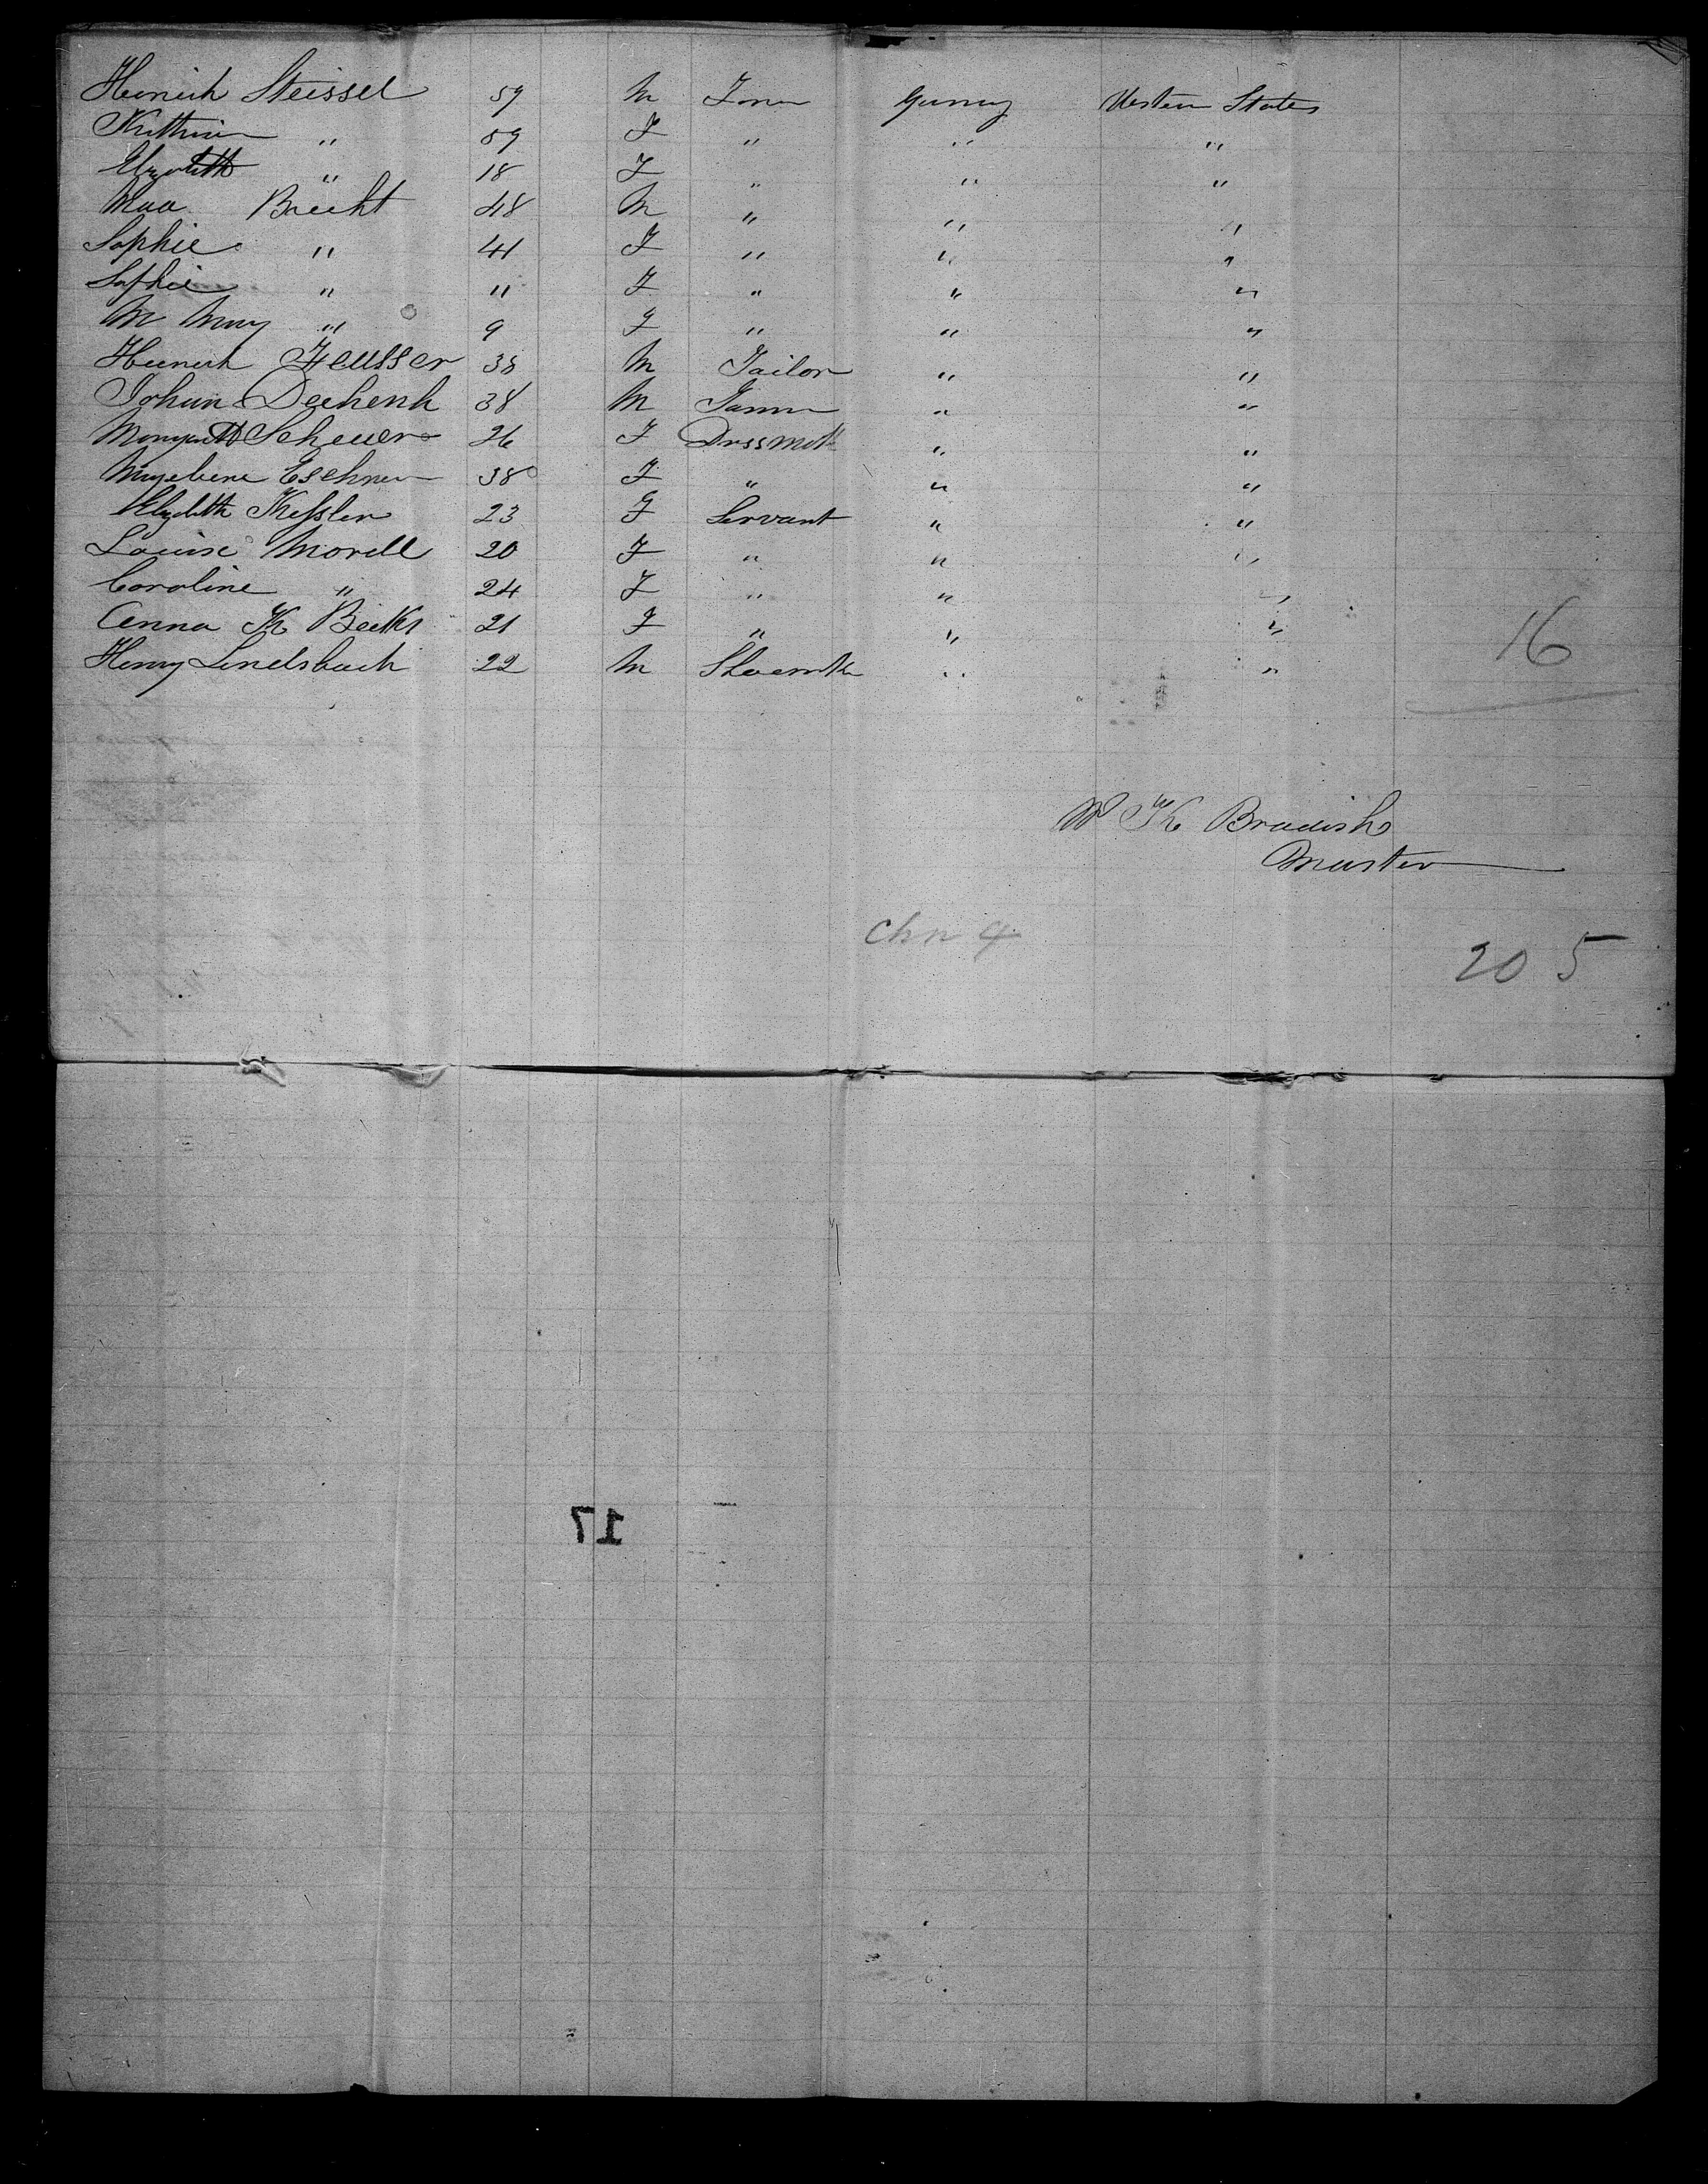 Heinrich Steissel 59 M Farmer Germany Western States
Kathrina " 59 F " " "
Elizabeth " 18 F " " "
Max Brecht 48 M " " "
Sophie " 41 F " " "
Sophie " 11 F " " "
M Mary " 9 F " " "
Heinrich Feusser 38 M Tailor " "
Johann Dechenh 38 M Farmer " "
Margareth Scheuer 26 F Drssmak " "
Eschner 38 F " " "
Elizabeth Kessler 23 F Servant " "
Louise Morell 20 F " " "
Caroline " 24 F " " "
Anna K Becker 21 F " " "
Henry Lindsbach 22 M Shoemkr " "
16
W K Bradish
Master
chn 4
20 5
17